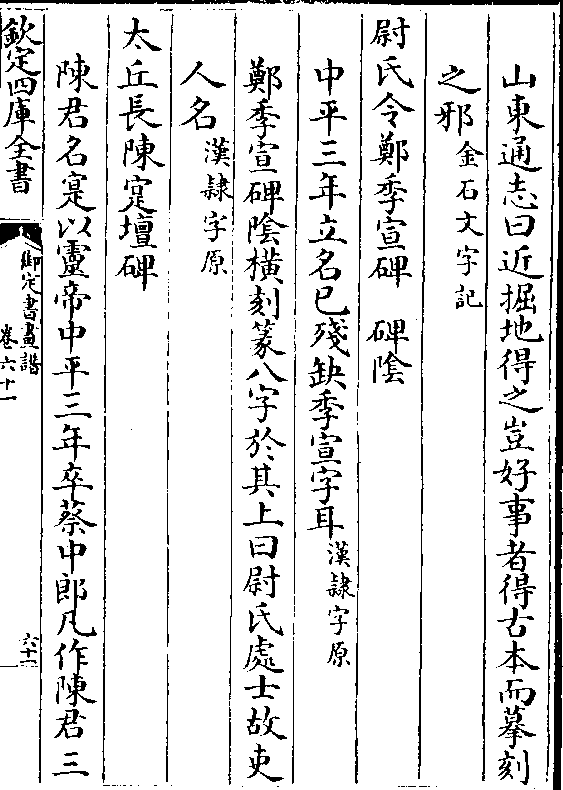 山東通志曰近掘地得之豈好事者得古本而摹刻
之邪金石文字記
尉氏令鄭季宣碑　碑陰
中平三年立名已殘缺季宣字耳漢隷字原
鄭季宣碑陰橫刻篆八字於其上曰尉氏處士故吏
人名漢隷字原
太丘長陳寔壇碑
陳君名寔以靈帝中平三年卒蔡中郎凡作陳君三
欽定四庫全書
御定書畫譜
卷六十一
六十一